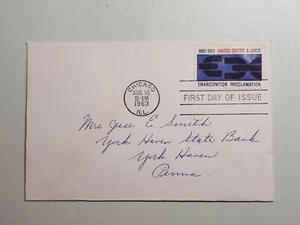 1863-1963 UNITED STATES 5 CENTS
EMANCIPATION PROCLAMATION
CHICAGO
AUG 16
9-AM
1963
ILL.
FIRST DAY OF ISSUE
Mrs Jesse E. Smith
York Haven State Bank
York Haven
Penna.